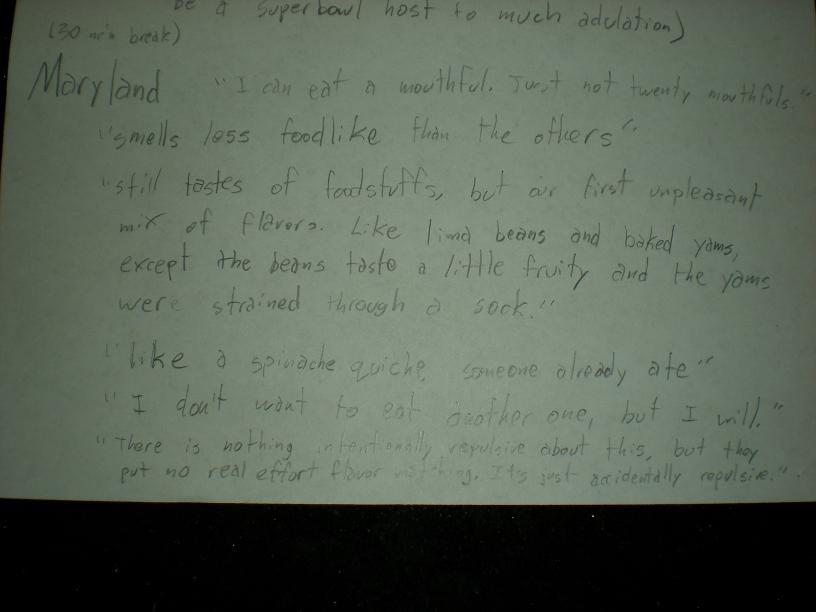 be a superbowl host to much adulation)
(30 min break)
Maryland "I can eat a mouthful. Just not twenty mouthfuls."
"smells less foodlike than the others"
"still tastes of foodstuffs, but our first unpleasant
mix of flavors. Like lima beans and baked yams,
except the beans taste a little fruity and the yams
were strained through a sock."
"like a spinache quiche someone already ate"
"I don't want to eat another one, but I will."
"There is nothing intentionally repulsive about this, but they
put no real effort flavor matching. It's just accidentally repulsive."